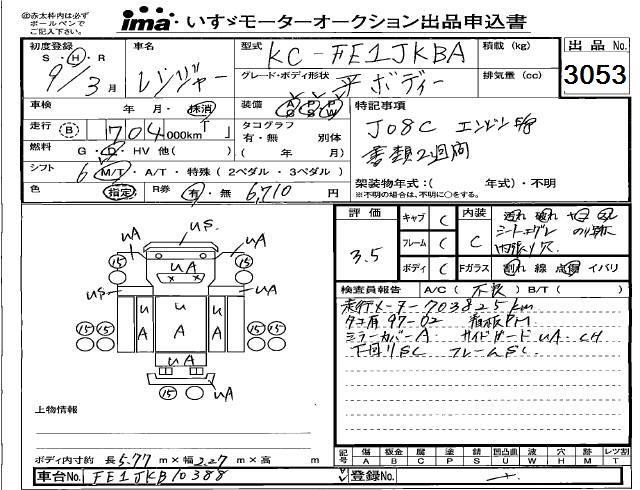 ㊟赤太枠内は必ず
ボールペンで
ご記入下さい。
ima・いすゞモーターオークション出品申込書
初度登録
S・H・R
9/3月
車名
レンジャー
型式
KC-FE1JKBA
グレード・ボディ形状
平ボディー
積載 (kg)
排気量 (cc)
出品 No.
3053
車検 年・月・抹消
装備 AC PS PW
特記事項
J08C エンジン
書類2週間
走行 B 704,000km
タコグラフ
有・無 別体
( 年 月)
燃料 G・D・HV 他( )
シフト 6 M/T・A/T・特殊 (2ペダル・3ペダル)
架装物年式:( 年式)・不明
※不明の場合は、不明に○をする。
色 指定 R券 有・無 6,710円
評価
3.5
キャブ C
フレーム C
ボディ C
内装
C
シートエグレ
内張り穴
Fガラス 割れ 線 点傷 イバリ
検査員報告 A/C( 不良 ) B/T( )
走行メーター703825km
タコ有97-02 看板PM
ミラーカバーA サイドガードUA.CH
下回りSC フレームSC.
UA US UA
15 UA 15
US UA
U A UA U A
15 15 15 15
UA
15 UA
上物情報
ボディ内寸約 長5.77m×幅2.27m×高 m
記載例 傷 板金 腐 塗 錆 凹凸曲 波 穴 外 無 レツ割
A B C P S U W H M T
車台No. FE1JKB10388
登録No.